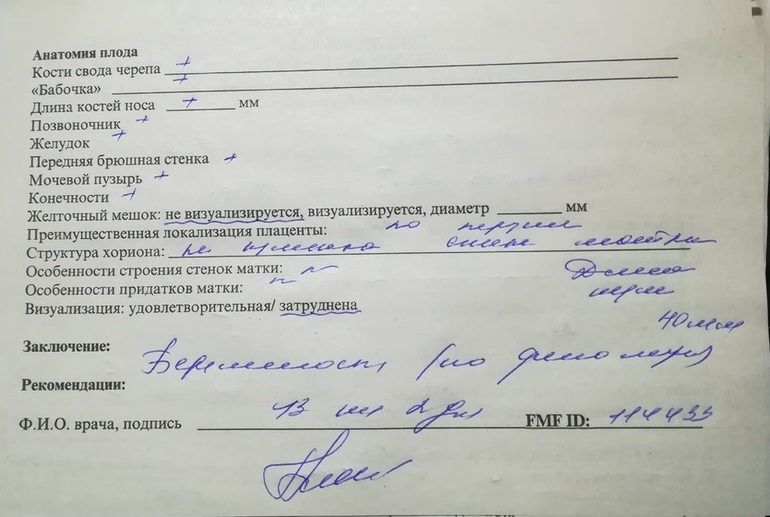 Анатомия плода
Кости свода черепа +
«Бабочка» +
Длина костей носа + мм
Позвоночник +
Желудок +
Передняя брюшная стенка +
Мочевой пузырь +
Конечности +
Желточный мешок: не визуализируется, визуализируется, диаметр ______ мм
Преимущественная локализация плаценты: по
Структура хориона: не стенке матки
Особенности строения стенок матки: N Длина
Особенности придатков матки: N
Визуализация: удовлетворительная/ затруднена
40 мм
Заключение: Беременность (по
Рекомендации:
13 2 дн
Ф.И.О. врача, подпись FMF ID: 114433